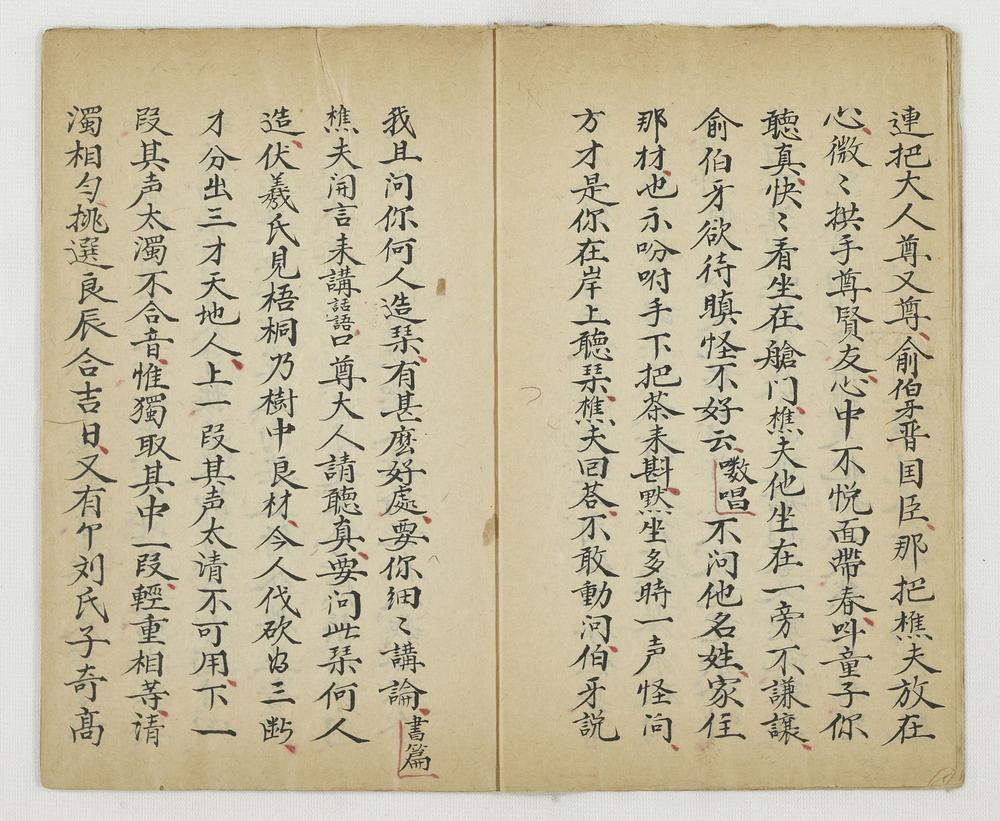 連把大人尊又尊俞伯牙晋国臣那把樵夫放在
心微〻拱手尊賢友心中不悦面帶春呌童子你
聽真快〻看坐在艙门樵夫他坐在一旁不謙讓
俞伯牙欲待瞋怪不好云數唱不问他名姓家住
那村也不吩咐手下把茶来斟默坐多時一声怪问
方才是你在岸上聽琹樵夫回荅不敢動问伯牙説
我且问你何人造琹有甚麽好處要你细〻講論書篇
樵夫開言来講話語口尊大人請聽真要问此琹何人
造伏羲氏見梧桐乃樹中良材今人伐砍为三断
才分出三才天地人上一段其声太清不可用下一
段其声太濁不合音惟獨取其中一段輕重相等清
濁相匀挑選良辰合吉日又有个刘氏子奇高